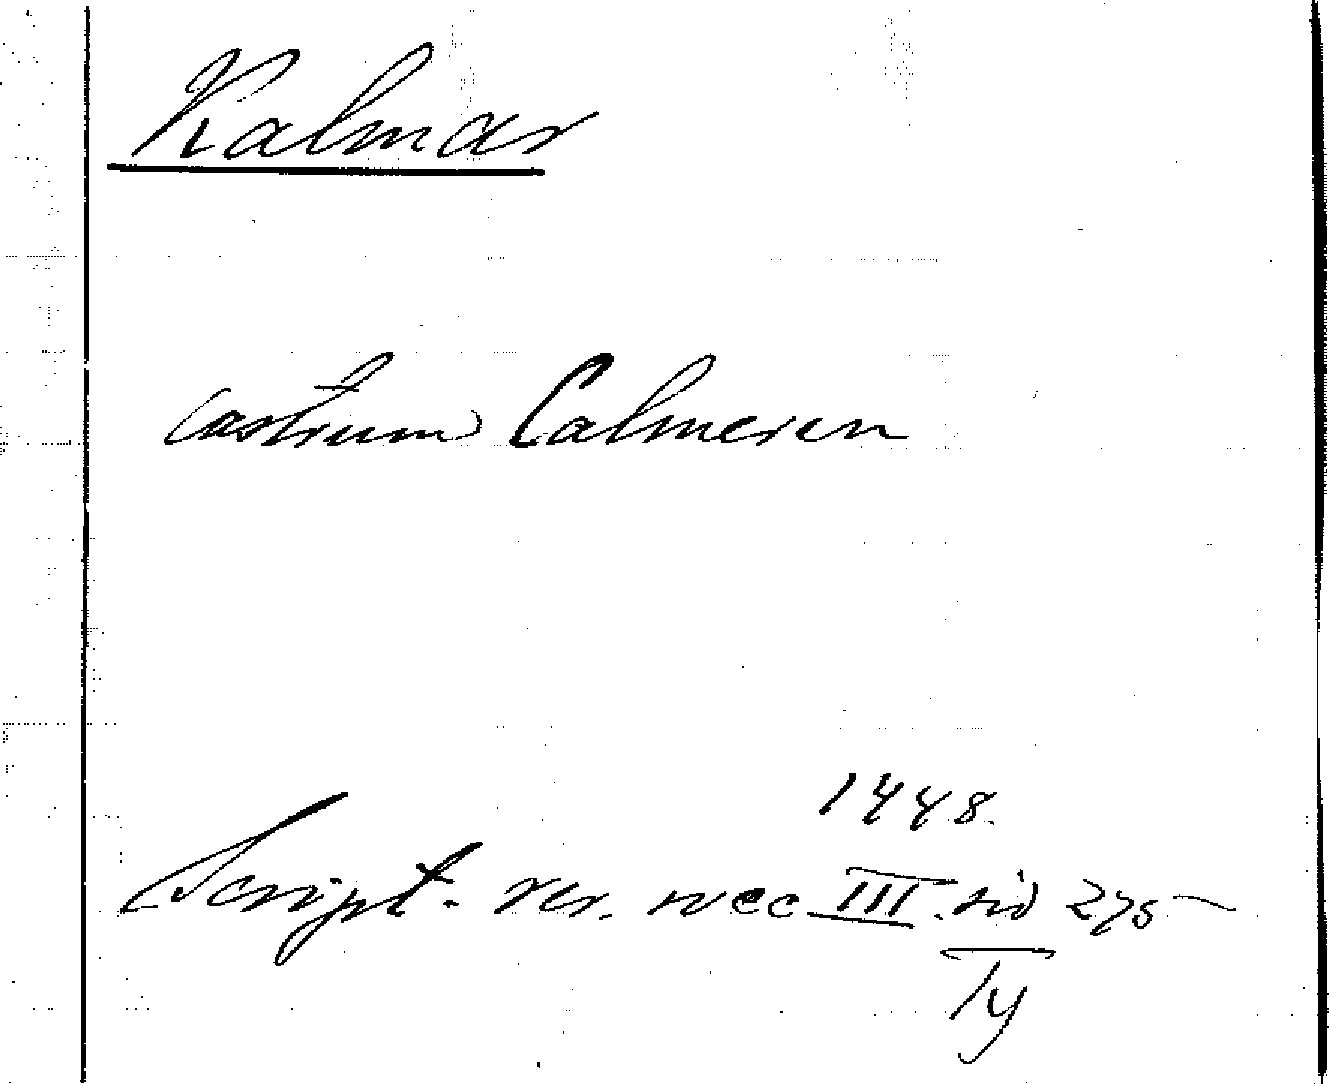 Kalmar
castrum Calmeren
1448.
Script. rer. svec III sid 275
Ty